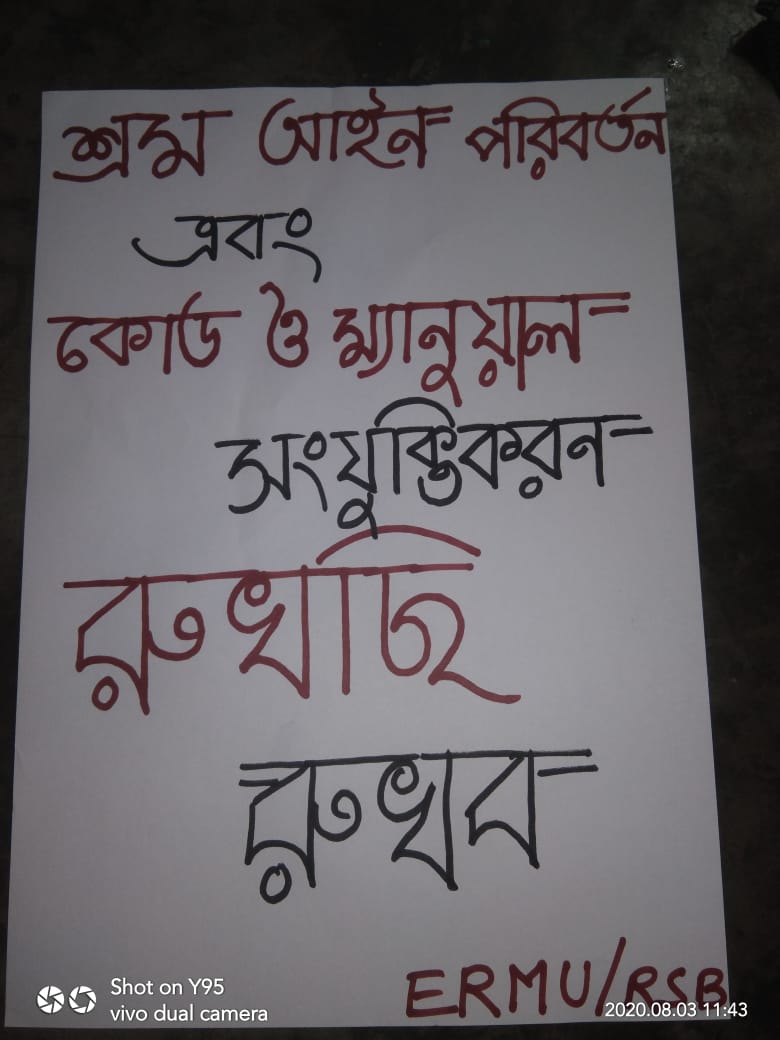 শ্রম আইন পরিবর্তন
এবং
কোড ও ম্যানুয়াল
সংযুক্তিকরন
রুখছি
রুখব
ERMU/RSB
Shot on Y95
vivo dual camera
2020.08.03 11:43